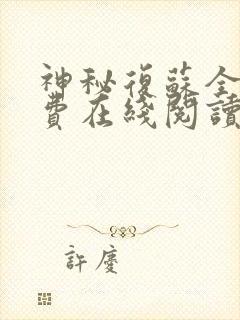 神秘復蘇全
費在綫閱讀
許慶